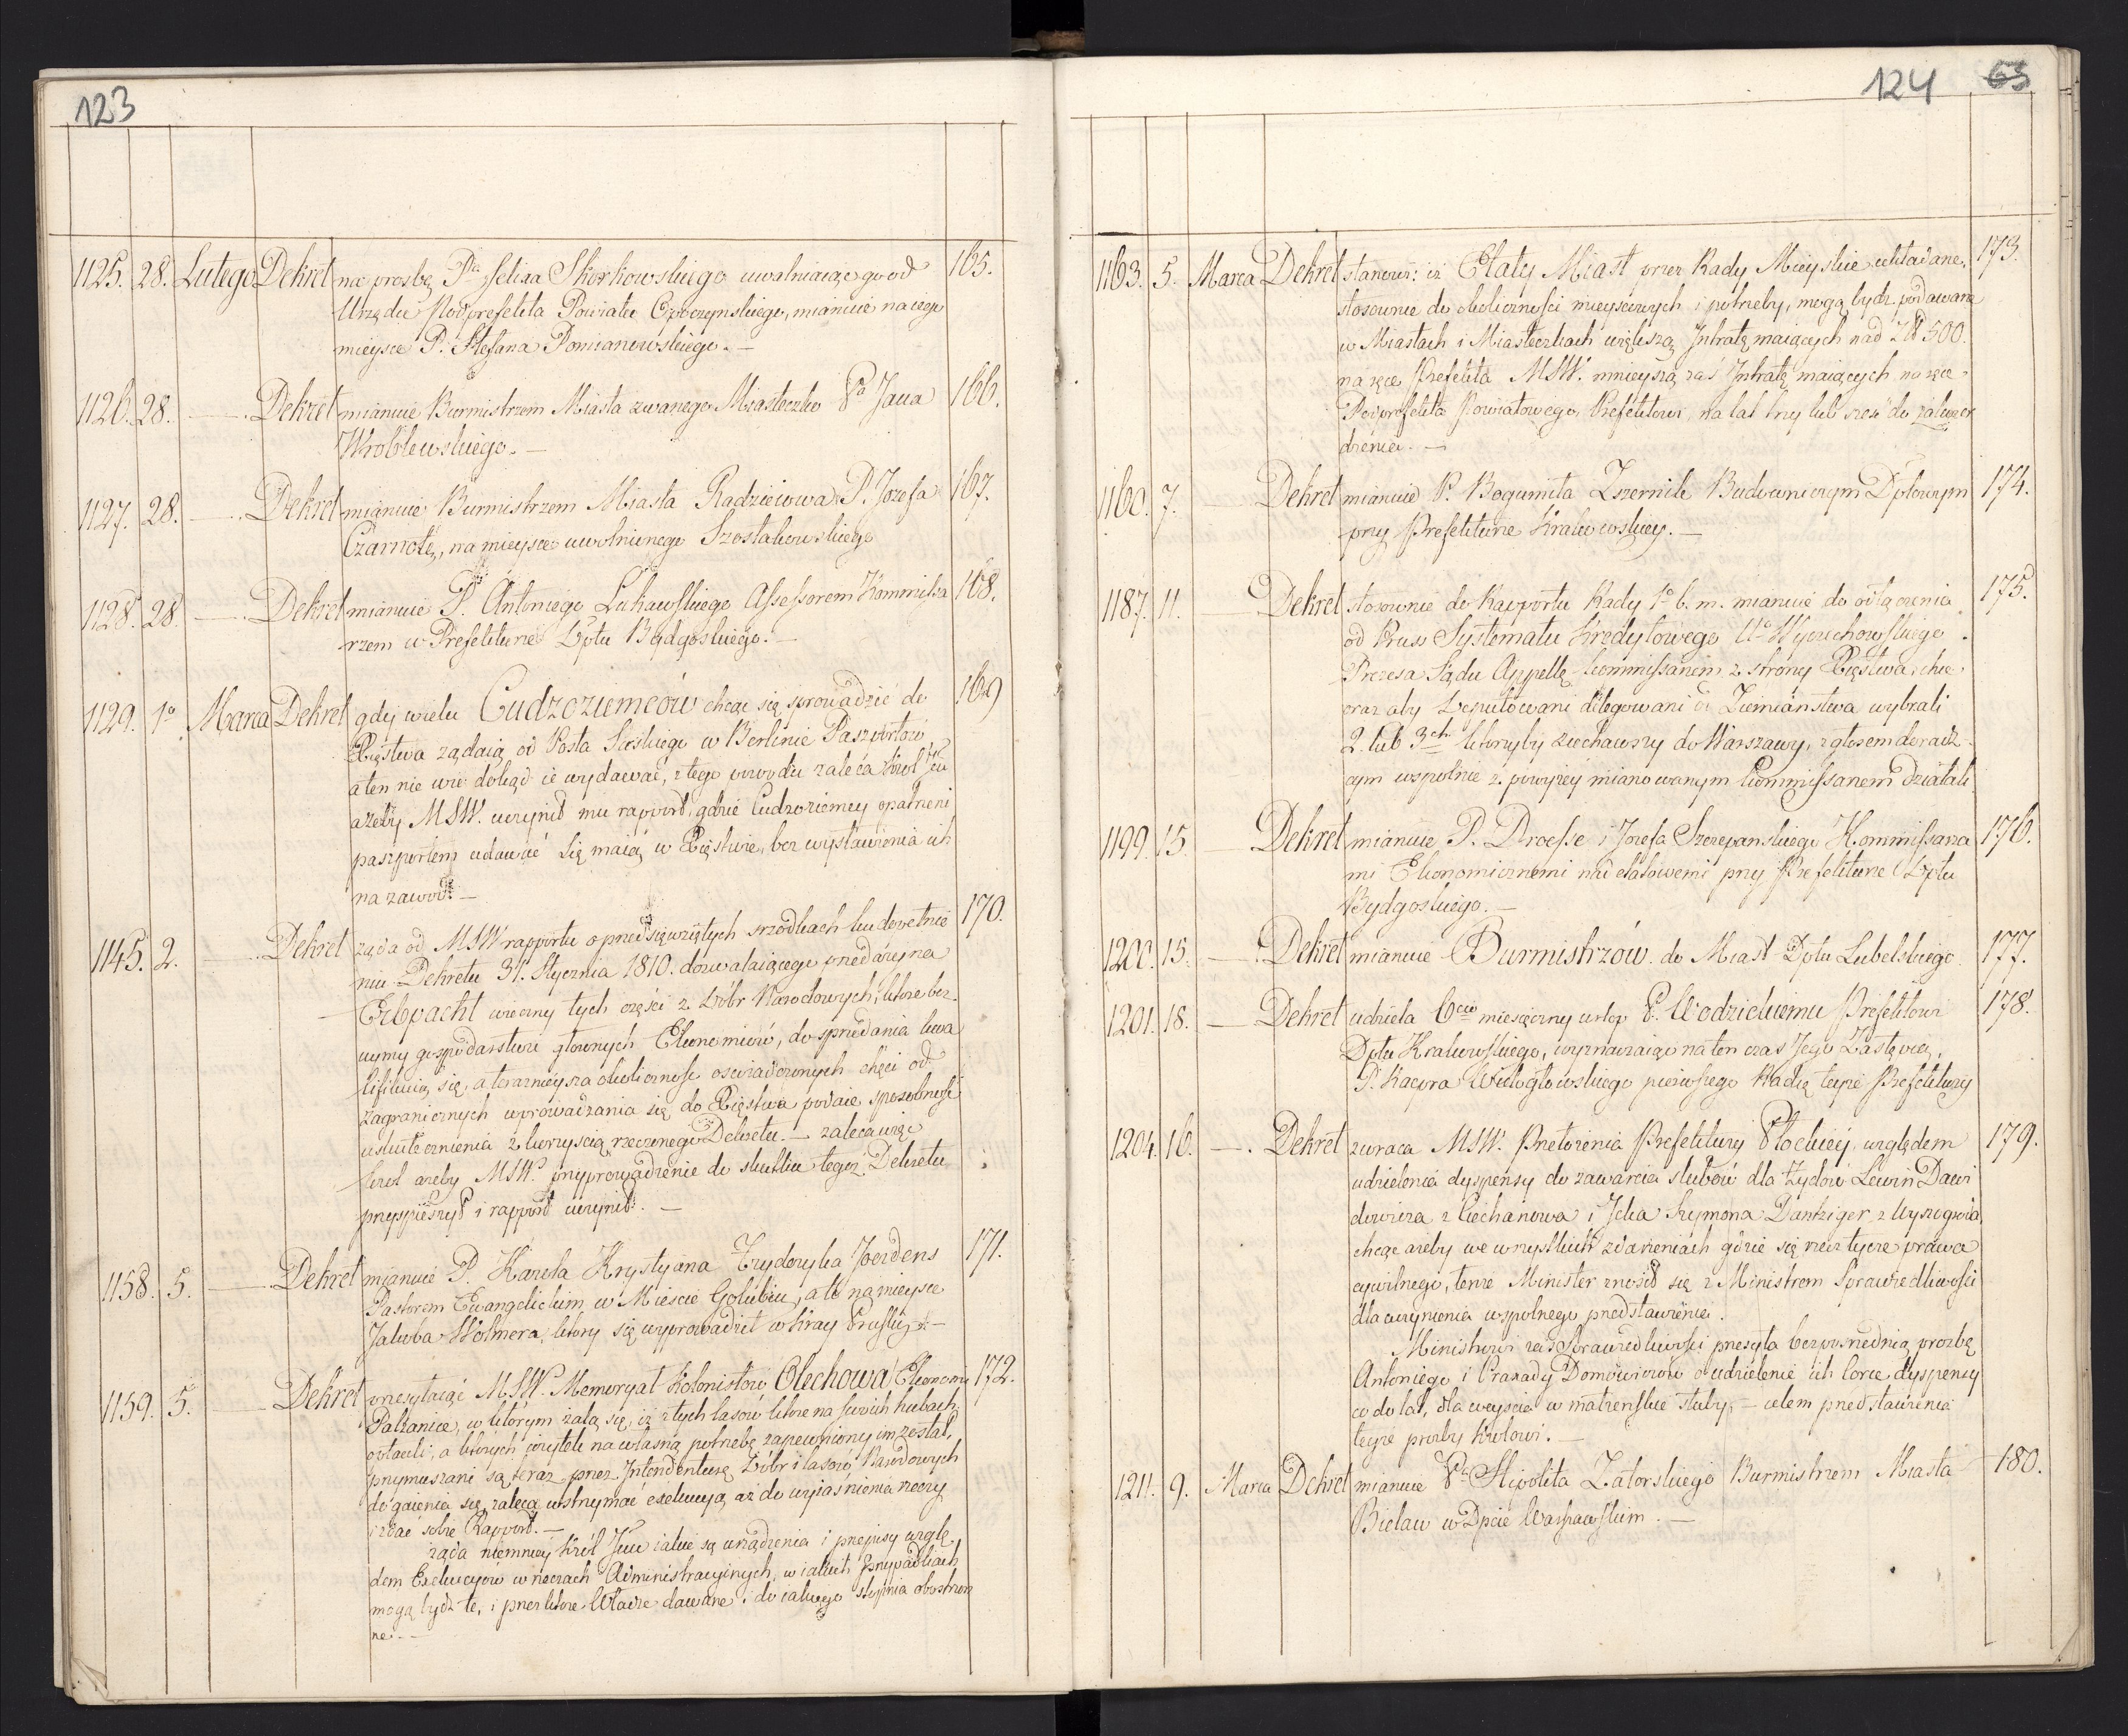 123
1125. 28. Lutego Dekret na prosbę Pa Felixa Skorkowskiego uwalniaiąc go od 165.
Urzędu Podprefekta Powiatu Opoczynskiego, mianuie na iego
mieysce P. Stefana Pomianowskiego. —
1126. 28. —. Dekret mianuie Burmistrzem Miasta zwanego Miasteczko Pa Jana 166.
Wroblewskiego. —
1127. 28. —. Dekret mianuie Burmistrzem Miasta Radzieiowa P. Jozefa 167.
Czarnotę, na mieysce uwolnionego Szostakowskiego
1128. 28. —. Dekret mianuie P. Antoniego Lukawskiego Assessorem Kommissa 168.
rzem w Prefekturze Dptu Bydgoskiego. —
1129. 1o Marca Dekret gdy wielu Cudzoziemców chcąc się sprowadzić do 169
Xięstwa żądaią od Posła Saskiego w Berlinie Paszportów
a ten nie wie dokąd ie wydawać, z tego powodu zaleca Krol Jmc
ażeby MSW. uczynił mu rapport, gdzie Cudzoziemcy opatrzeni
paszportem udawać się maią w Xięstwie, bez wystawienia ich
na zawod. —
1145. 2. —. Dekret żąda od MSW rapportu o przedsięwziętych srzodkach ku dopełnie 170.
niu Dekretu 31. Stycznia 1810. dozwalaiącego przedaży na
Erbpacht wieczny tych części z Dóbr Narodowych, ktore bez
uymy gospodarstwu głownych Ekonomiów, do sprzedania kwa
lifikuią się, a teraznieysza okoliczność oswiadczonych chęci od
zagranicznych wprowadzania się do Xięstwa podaie sposobność
uskutecznienia z korzyscią rzeczonego Dekretu. — zaleca więc
Krol ażeby MSW. przyprowadzenie do skutku tegoż Dekretu
przyspieszył i rapport uczynił. —
1158. 5. — Dekret mianuie P. Karola Krystyana Frydryka Joerdens 171.
Pastorem Ewangelickim w Miescie Golubiu, a to na mieysce
Jakuba Wolmera, ktory się wyprowadził w Kray Pruski. —
1159. 5. — Dekret przesyłaiąc MSW. Memoryał Kolonistow Olechowa Ekonomii 172.
Pabianice, w którym żalą się, iż z tych lasów ktore na swoich hubach
osławili, a których użytek na własną potrzebę zapewniony im został,
przymuszani są teraz przez Intendenturę Dóbr i lasów Narodowych
do gaienia się, zaleca wstrzymać exekucyą, aż do wyiaśnienia rzeczy
i zdać sobie Rapport. —
żąda niemniey Król Jmc iakie są urządzenia i przepisy wzglę
dem Exekucyów w rzeczach Administracyinych, w iakich przypadkach
mogą bydz te, i przez ktore Władze dawane i do iakiego stopnia obostrzo
ne. —
124 63
1163. 5. Marca Dekret stanowi: iż Etaty Miast przez Rady Mieyskie układane, 173.
stosownie do okoliczności mieyscowych i potrzeby, mogą bydz podawane
w Miastach i Miasteczkach większą Intratę maiących nad Zł 500.
na ręce Prefekta MSW. mnieyszą zaś Intratę maiących na ręce
Podprefekta Powiatowego Prefektowi, na lat trzy lub sześć do zatwier
dzenia. —
1160. 7. — Dekret mianuie P. Bogumiła Zszernik Budowniczym Dptowym 174.
przy Prefekturze Krakowskiey. —
1187. 11. — Dekret stosownie do Rapportu Rady 1o b. m. mianuie do odłączenia 175.
od Pruss Systematu Kredytowego Uo Wyczechowskiego
Prezesa Sądu Appell. Kommissarzem z strony Xięstwa, chce
oraz aby Deputowani delegowani od Ziemiaństwa wybrali
2. lub 3ch ktorzyby ziechawszy do Warszawy, z głosem doradz
czym wspolnie z powyżey mianowanym Kommissarzem działali
1199. 15. — Dekret mianuie P. Droesse i Jozefa Szczepanskiego Kommissarza 176.
mi Ekonomicznemi nad etatowemi przy Prefekturze Dptu
Bydgoskiego. —
1200. 15. —. Dekret mianuie Burmistrzów do Miast Dptu Lubelskiego 177.
1201. 18. — Dekret udziela 6cio miesięczny urlop P. Wodzickiemu Prefektowi 178.
Dptu Krakowskiego, wyznaczaiąc na ten czas Jego Zastępcą,
P. Kacpra Wielogłowskiego pierwszego Radcę teyże Prefektury
1204. 16. —. Dekret zwraca MSW. Przełożenia Prefektury Płockiey względem 179.
udzielenia dyspensy do zawarcia ślubów dla Żydów Lewin Dawi
dowicza z Ciechanowa i Icka Szymona Dantziger z Wyszogroda,
chcąc ażeby we wszystkich zdarzeniach gdzie się rzecz tycze prawa
cywilnego, tenże Minister znosił się z Ministrem Sprawiedliwości
dla uczynienia wspolnego przedstawienia.
Ministrowi zaś Sprawiedliwości przesyła bezposrzednią prozbę
Antoniego i Praxady Domowiczow o udzielenie ich corce dyspensy
co do lat, dla weyścia w małżenskie śluby, — celem przedstawienia
teyże prozby Krolowi. —
1211. 9. Marca Dekret mianuie Pa Hipolita Zatorskiego Burmistrzem Miasta 180.
Bielaw w Dpcie Warszawskim. —